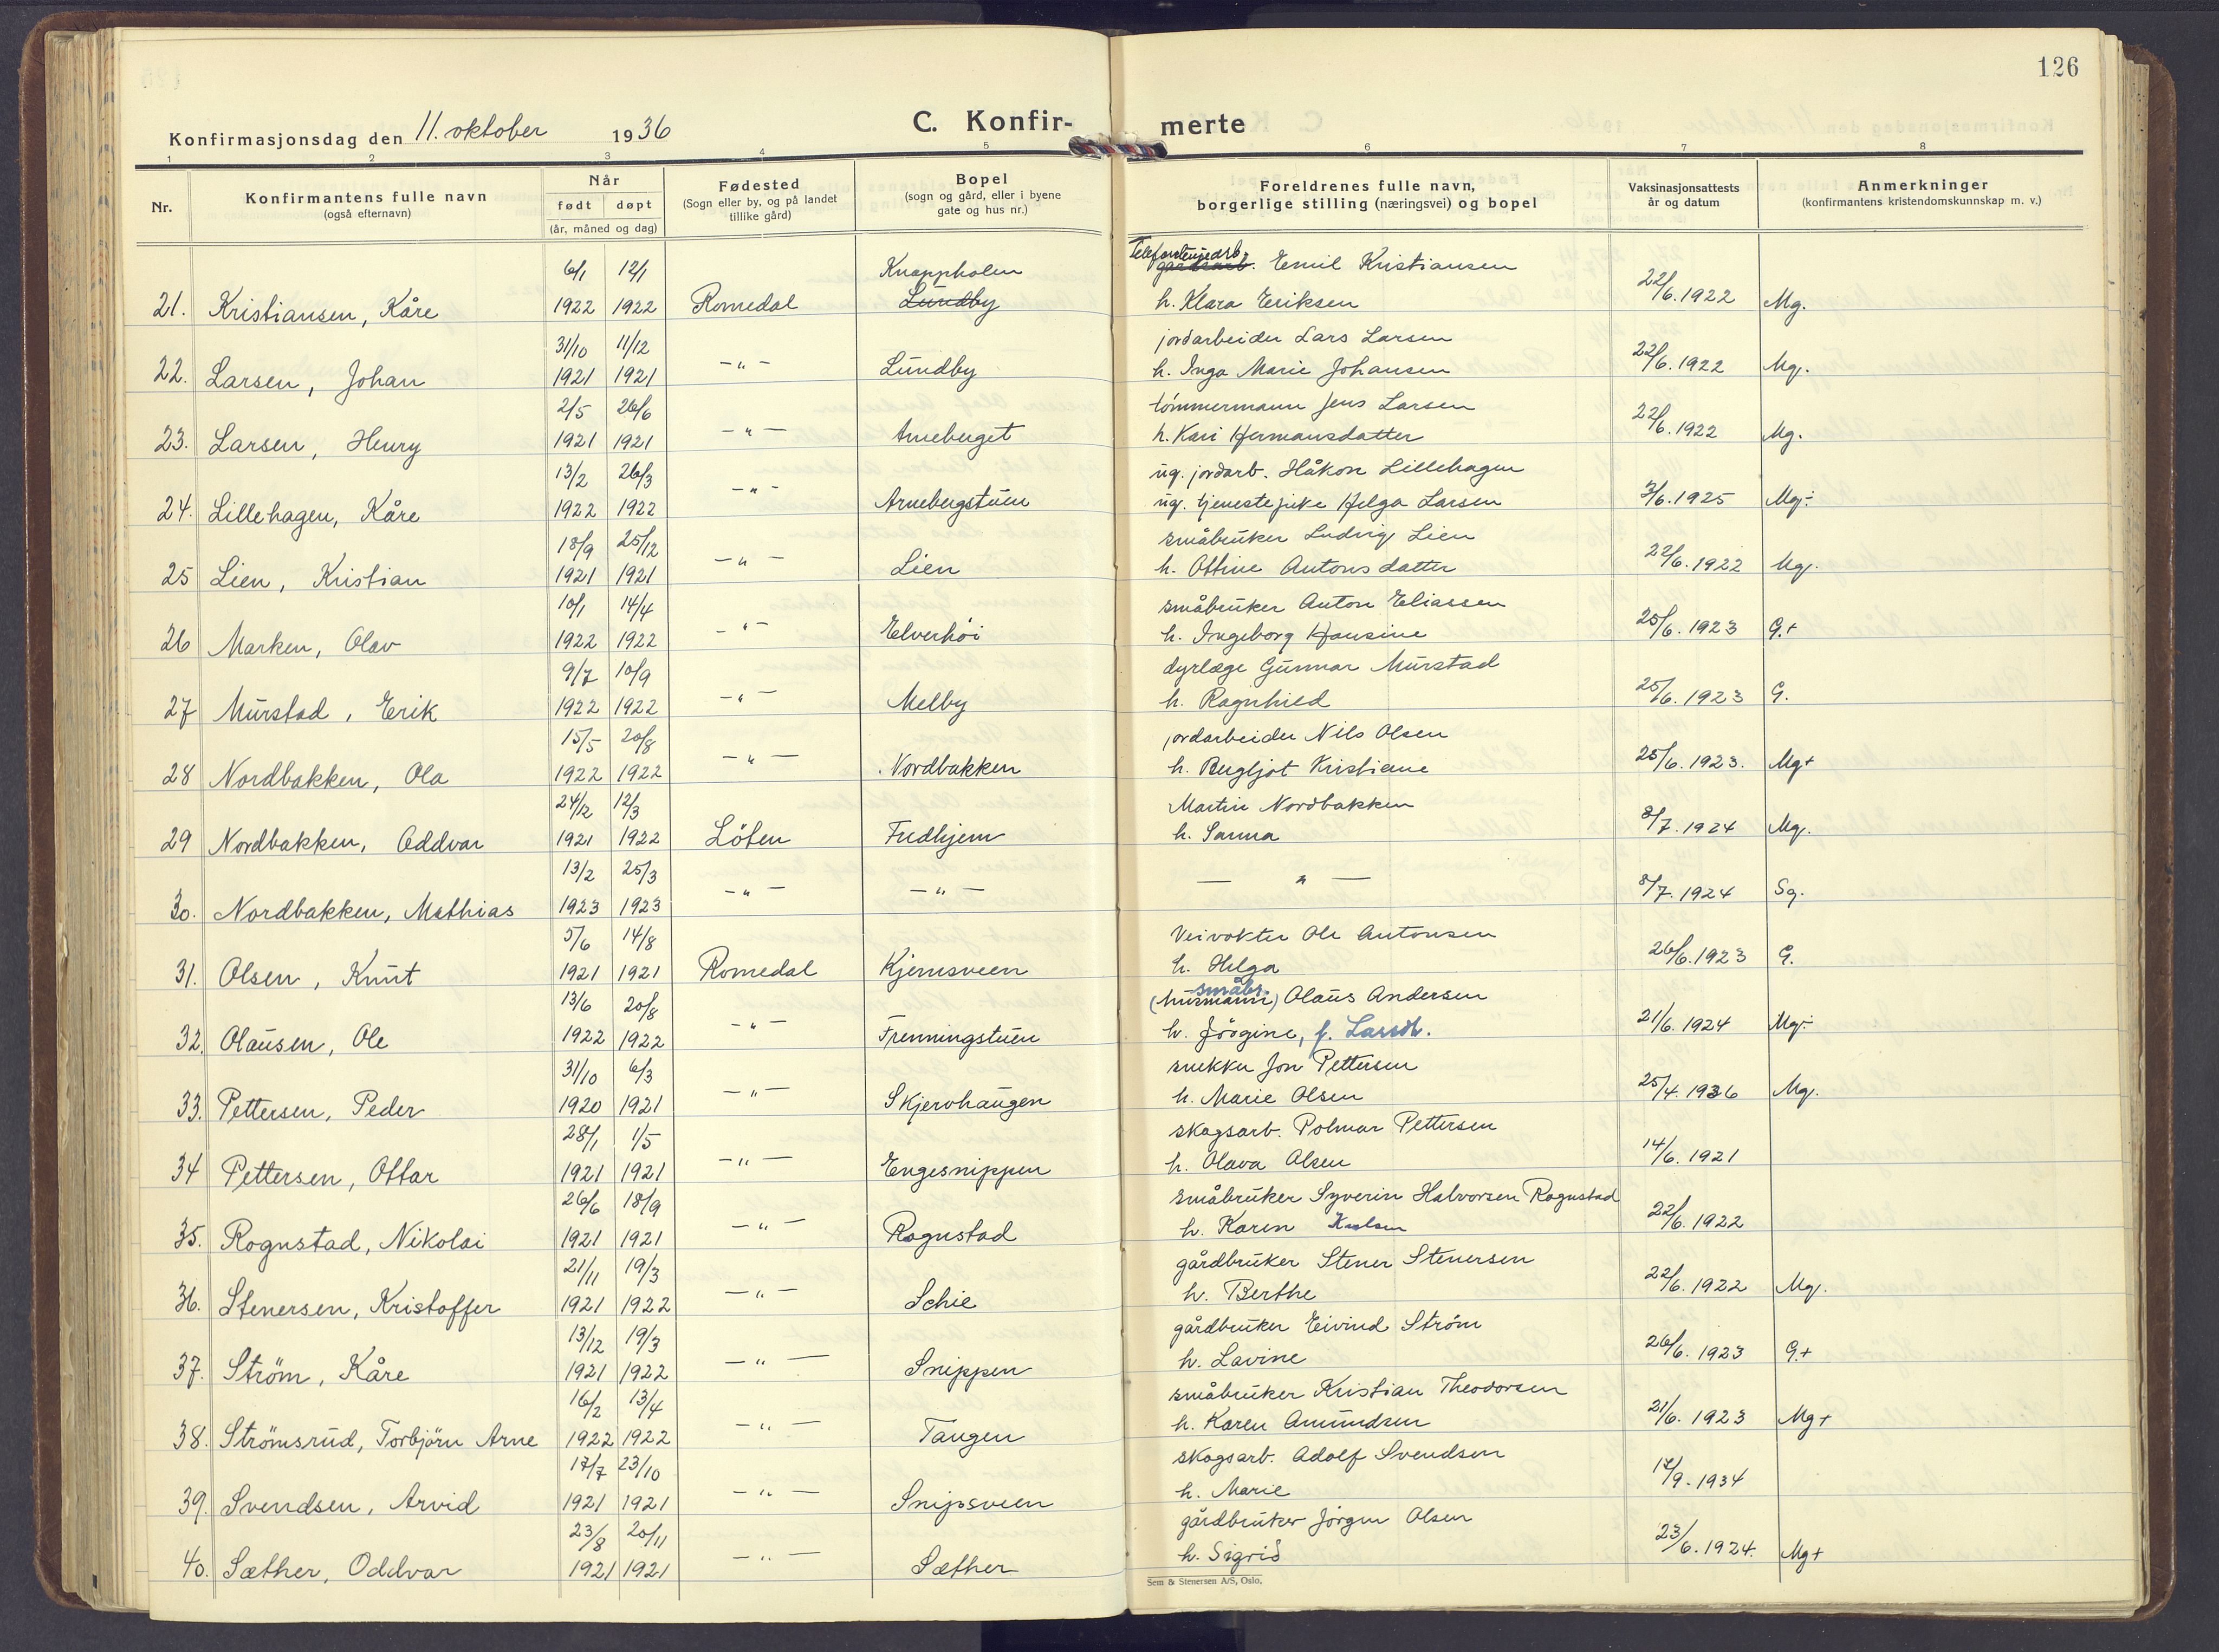 126
Konfirmasjonsdag den 11. oktober 1936
C. Konfir-
merte
1 2 3 4 5 6 7 8
Nr.
Konfirmantens fulle navn
(også efternavn)
Når
født døpt
(år, måned og dag)
Fødested
(Sogn eller by, og på landet
tillike gård)
Bopel
(sogn og gård, eller i byene
gate og hus nr.)
Foreldrenes fulle navn,
borgerlige stilling (næringsvei) og bopel
Vaksinasjonsattests
år og datum
Anmerkninger
(konfirmantens kristendomskunnskap m. v.)
6/1 12/1 Knappholen gårdsarb. Emil Kristiansen
21. Kristiansen, Kåre 1922 1922 Romedal Lundby h. Klara Eriksen 22/6.1922 Mg.
31/10 11/12 jordarbeider Lars Larsen
22. Larsen, Johan 1921 1921 -"- Lundby h. Inga Marie Johansen 22/6.1922 Mg.
2/5 26/6 tömmermann Jens Larsen
23. Larsen, Henry 1921 1921 -"- Arneberget h. Kari Hermansdatter 22/6.1922 Mg.
13/2 26/3 ug. jordarb. Håkon Lillehagen
24. Lillehagen, Kåre 1922 1922 -"- Arnebergstuen ug. tjenestepike Helga Larsen 3/6.1925 Mg÷
18/9 25/12 småbruker Ludvig Lien
25 Lien, Kristian 1921 1921 -"- Lien h. Ottine Antonsdatter 22/6.1922 Mg.
10/1 14/4 småbruker Anton Eliassen
26 Marken, Olav 1922 1922 -"- Elverhöi h. Ingeborg Hansine 25/6.1923 G.+
9/7 10/9 dyrlæge Gunnar Murstad
27 Murstad, Erik 1922 1922 -"- Melby h. Ragnhild 25/6.1923 G.
15/5 20/8 jordarbeider Nils Olsen
28 Nordbakken, Ola 1922 1922 -"- Nordbakken h. Bergljot Kristiane 25/6.1923. Mg+
24/12 12/3 Martin Nordbakken
29 Nordbakken, Oddvar 1921 1922 Löten Fredhjem h. Sanna 8/7.1924 Mg.
13/2 25/3
30. Nordbakken, Mathias 1923 1923 -"- -"- -"- 8/7.1924 Sg.
5/6 14/8 Veivokter Ole Antonsen
31. Olsen, Knut 1921 1921 Romedal Kjernsveen h. Helga 26/6.1923 G.
13/6 20/8 småbr. (husmann) Olaus Andersen
32. Olausen, Ole 1922 1922 -"- Frenningstuen h. Jörgine, f. Larsdt. 21/6.1924 Mg÷
31/10 6/3 snekker Jon Pettersen
33. Pettersen, Peder 1920 1921 -"- Skjervhaugen h. Marie Olsen 25/4.1936 Mg.
28/1 1/5 skogsarb. Polmar Pettersen
34 Pettersen, Ottar 1921 1921 -"- Engesnippen h. Olava Olsen 14/6.1921
26/6 18/9 småbruker Syverin Halvorsen Rognstad
35. Rognstad, Nikolai 1921 1921 -"- Rognstad h. Karen Karlsen 22/6.1922
21/11 19/3 gårdbruker Stener Stenersen
36. Stenersen, Kristoffer 1921 1922 -"- Schie h. Berthe 22/6.1922 Mg.
13/12 19/3 gårdbruker Eivind Ström
37. Ström, Kåre 1921 1922 -"- Snippen h. Lavine 26/6.1923 G.+
16/2 13/4 småbruker Kristian Theodorsen
38. Strömsrud, Torbjörn Arne 1922 1922 -"- Tangen h. Karen Amundsen 21/6.1923 Mg+
17/7 23/10 skogsarb. Adolf Svendsen
39. Svendsen, Arvid 1921 1921 -"- Snipsveen h. Marie 17/9.1934
23/8 20/11 gårdbruker Jörgen Olsen
40. Sæther, Oddvar 1921 1921 -"- Sæther h. Sigrid 23/6.1924. Mg+
Sem & Stenersen A/S, Oslo.